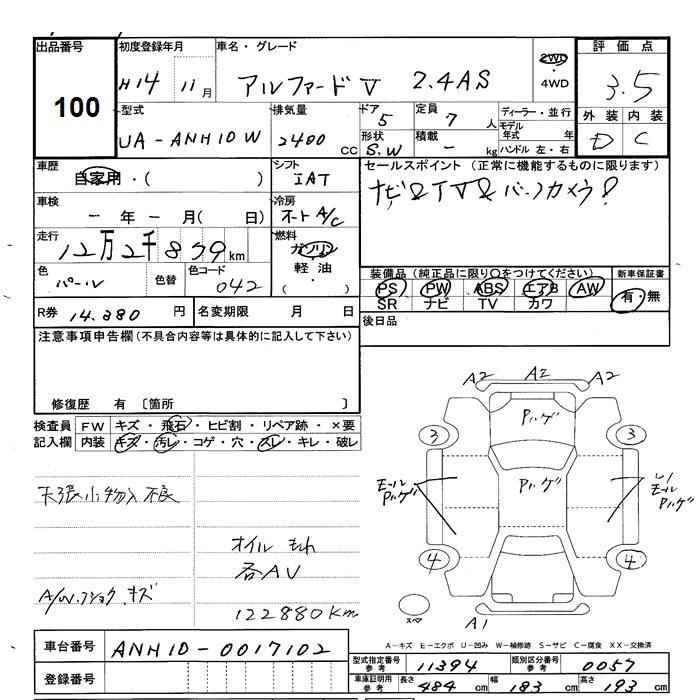 出品番号 初度登録年月 車名・グレード 評価点
100 H14 11月 アルファード V 2.4AS 2WD・4WD 3.5
型式 排気量 ドア 5 定員 7人 ディーラー・並行 外装 内装
UA-ANH10W 2400cc 形状 S.W 積載 - kg モデル年式 年 D C
ハンドル 左・右
車歴 シフト セールスポイント(正常に機能するものに限ります)
自家用・( ) IAT ナビ&TV&バックカメラ!
車検 冷房
-年-月( 日) オートA/C
走行 燃料
12万2千879km ガソリン
軽油・( )
色 色替 色コード 装備品(純正品に限り○をつけてください) 新車保証書
パール 042 PS PW ABS エアB AW 有・無
SR ナビ TV カワ
R券 14.380円 名変期限 月 日 後日品
注意事項申告欄(不具合内容等は具体的に記入して下さい)
修復歴 有 〔箇所 〕
検査員 FW キズ・飛石・ヒビ割・リペア跡・×要
記入欄 内装 キズ・汚レ・コゲ・穴・スレ・キレ・破レ
天張 小物入 不良
オイルもれ
各AV
A/W.フショク.キズ
122880Km
A2 A2 A2
Pハゲ
3 3
Pハゲ
モール Pハゲ
モール Pハゲ
4 4
スペア
A1
A-キズ E-エクボ U-凹み W-補修跡 S-サビ C-腐食 XX-交換済
車台番号 ANH10-0017102
型式指定番号 参考 11394 類別区分番号 参考 0057
登録番号
車庫証明用 参考 長さ 484cm 幅 183cm 高さ 193cm